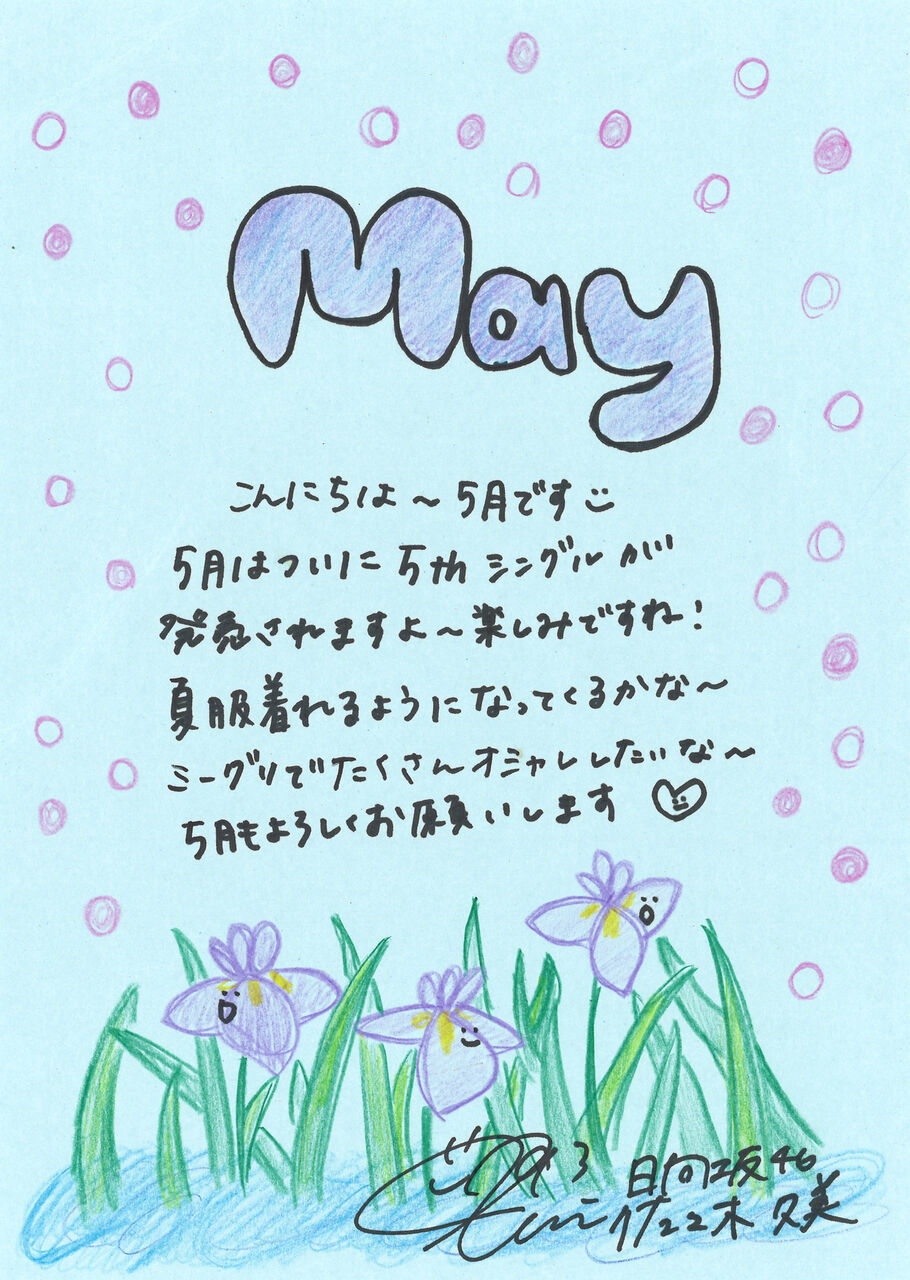 May
こんにちは～5月です
5月はついに 5th シングルが
発売されますよ～楽しみですね！
夏服着れるようになってくるかな～
ミーグリでたくさんオシャレしたいな～
5月もよろしくお願いします
日向坂46
佐々木久美